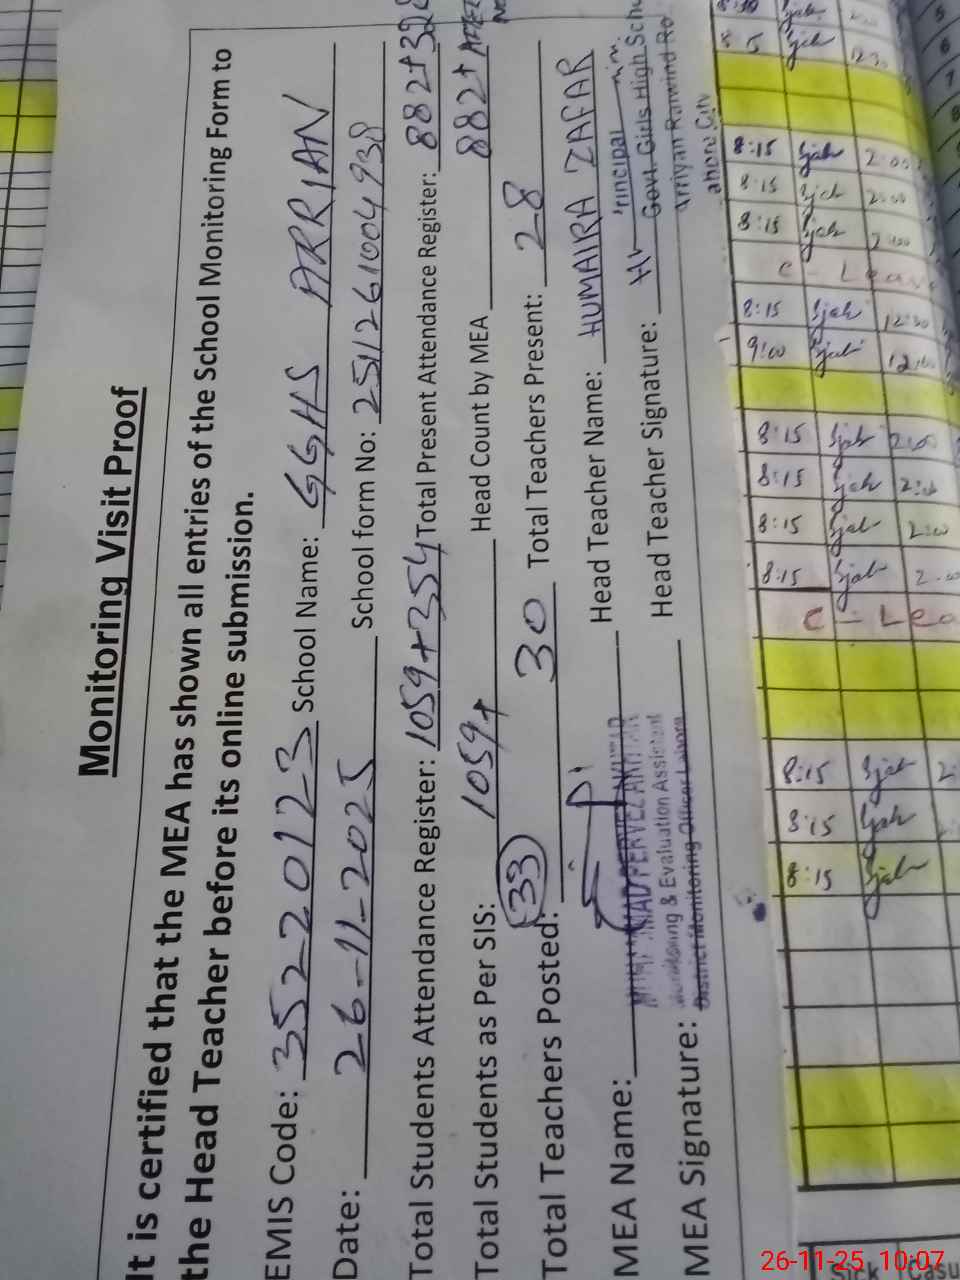 Monitoring Visit Proof
It is certified that the MEA has shown all entries of the School Monitoring Form to
the Head Teacher before its online submission.
EMIS Code: 35220123 School Name: GGHS ARRIAN
Date: 26-11-2025 School form No: 2511261004938
Total Students Attendance Register: 1059+354 Total Present Attendance Register: 882+328
Total Students as Per SIS: 1059+ Head Count by MEA 882+
33
Total Teachers Posted: 30 Total Teachers Present: 28
MEA Name: Head Teacher Name: HUMAIRA ZAFAR
PERVEZ
Monitoring & Evaluation Assistant
District Monitoring Officer Lahore
MEA Signature: Head Teacher Signature:
Govt. Girls High
Arriyan Raiwind
8:15 2:00
8:15 2:00
8:15 2:00
C - Leave
8:15 12:30
9:00 12:00
8:15 2:00
8:15
8:15 2:00
8:15 2:00
C - Lea
8:15
8:15
8:15
Sick
26-11-25 10:07